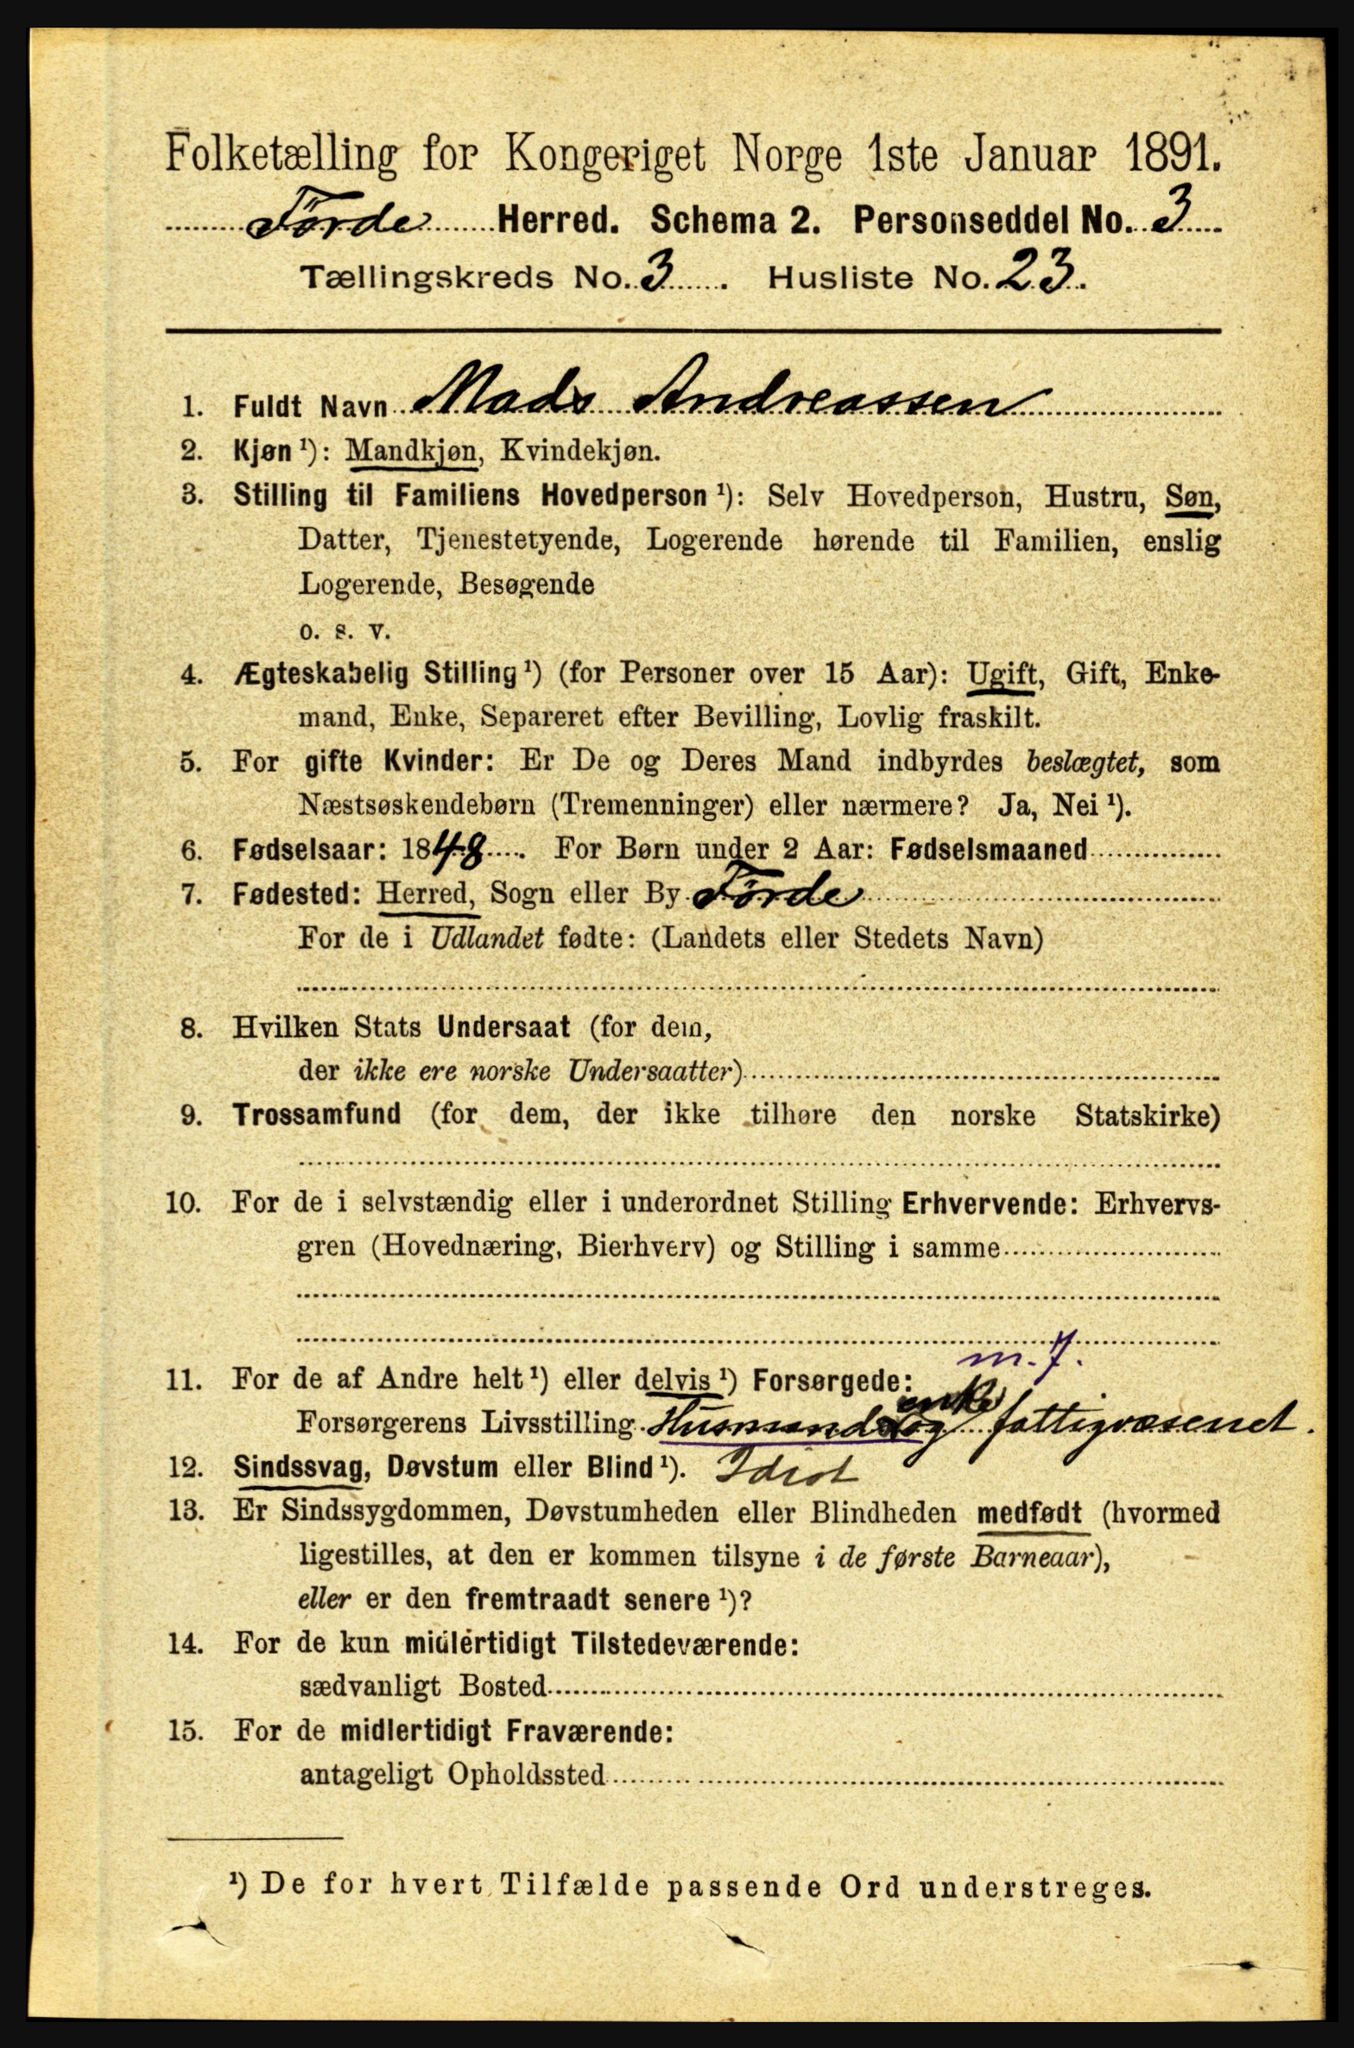 Folketælling for Kongeriget Norge 1ste Januar 1891.
Førde Herred. Schema 2. Personseddel No. 3
Tællingskreds No. 3. Husliste No. 23.
1. Fuldt Navn Mads Andreassen
2. Kjøn ¹): Mandkjøn, Kvindekjøn.
3. Stilling til Familiens Hovedperson ¹): Selv Hovedperson, Hustru, Søn,
Datter, Tjenestetyende, Logerende hørende til Familien, enslig
Logerende, Besøgende
o. s. v.
4. Ægteskabelig Stilling ¹) (for Personer over 15 Aar): Ugift, Gift, Enke-
mand, Enke, Separeret efter Bevilling, Lovlig fraskilt.
5. For gifte Kvinder: Er De og Deres Mand indbyrdes beslægtet, som
Næstsøskendebørn (Tremenninger) eller nærmere? Ja, Nei ¹).
6. Fødselsaar: 1848. For Børn under 2 Aar: Fødselsmaaned
7. Fødested: Herred, Sogn eller By Førde
For de i Udlandet fødte: (Landets eller Stedets Navn)
8. Hvilken Stats Undersaat (for dem,
der ikke ere norske Undersaatter)
9. Trossamfund (for dem, der ikke tilhøre den norske Statskirke)
10. For de i selvstændig eller i underordnet Stilling Erhvervende: Erhvervs-
gren (Hovednæring, Bierhverv) og Stilling i samme
m. 7.
11. For de af Andre helt ¹) eller delvis ¹) Forsørgede:
enke
Forsørgerens Livsstilling Husmands og fattigvæsenet.
12. Sindssvag, Døvstum eller Blind ¹). Idiot
13. Er Sindssygdommen, Døvstumheden eller Blindheden medfødt (hvormed
ligestilles, at den er kommen tilsyne i de første Barneaar),
eller er den fremtraadt senere ¹)?
14. For de kun midlertidigt Tilstedeværende:
sædvanligt Bosted
15. For de midlertidigt Fraværende:
antageligt Opholdssted
¹) De for hvert Tilfælde passende Ord understreges.